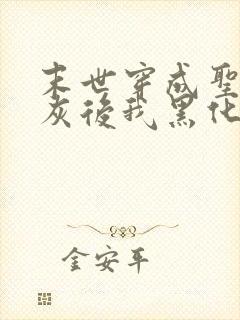 末世穿成聖
灰後我黑化
金安平